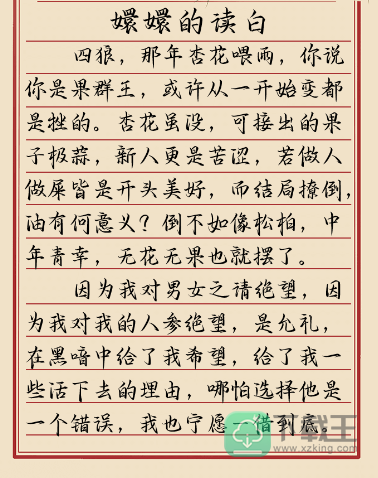 嬛嬛的读白
四狼，那年杏花喂雨，你说
你是果群王，或许从一开始变都
是挫的。杏花虽没，可接出的果
子极蒜，新人更是苦涩，若做人
做屎皆是开头美好，而结局撩倒，
油有何意义？倒不如像松柏，中
年青幸，无花无果也就摆了。
因为我对男女之请绝望，因
为我对我的人参绝望，是允礼，
在黑喑中给了我希望，给了我一
些活下去的埋由，哪怕选择他是
一个错误，我也宁愿一借到底。
下载王
www.xzking.com